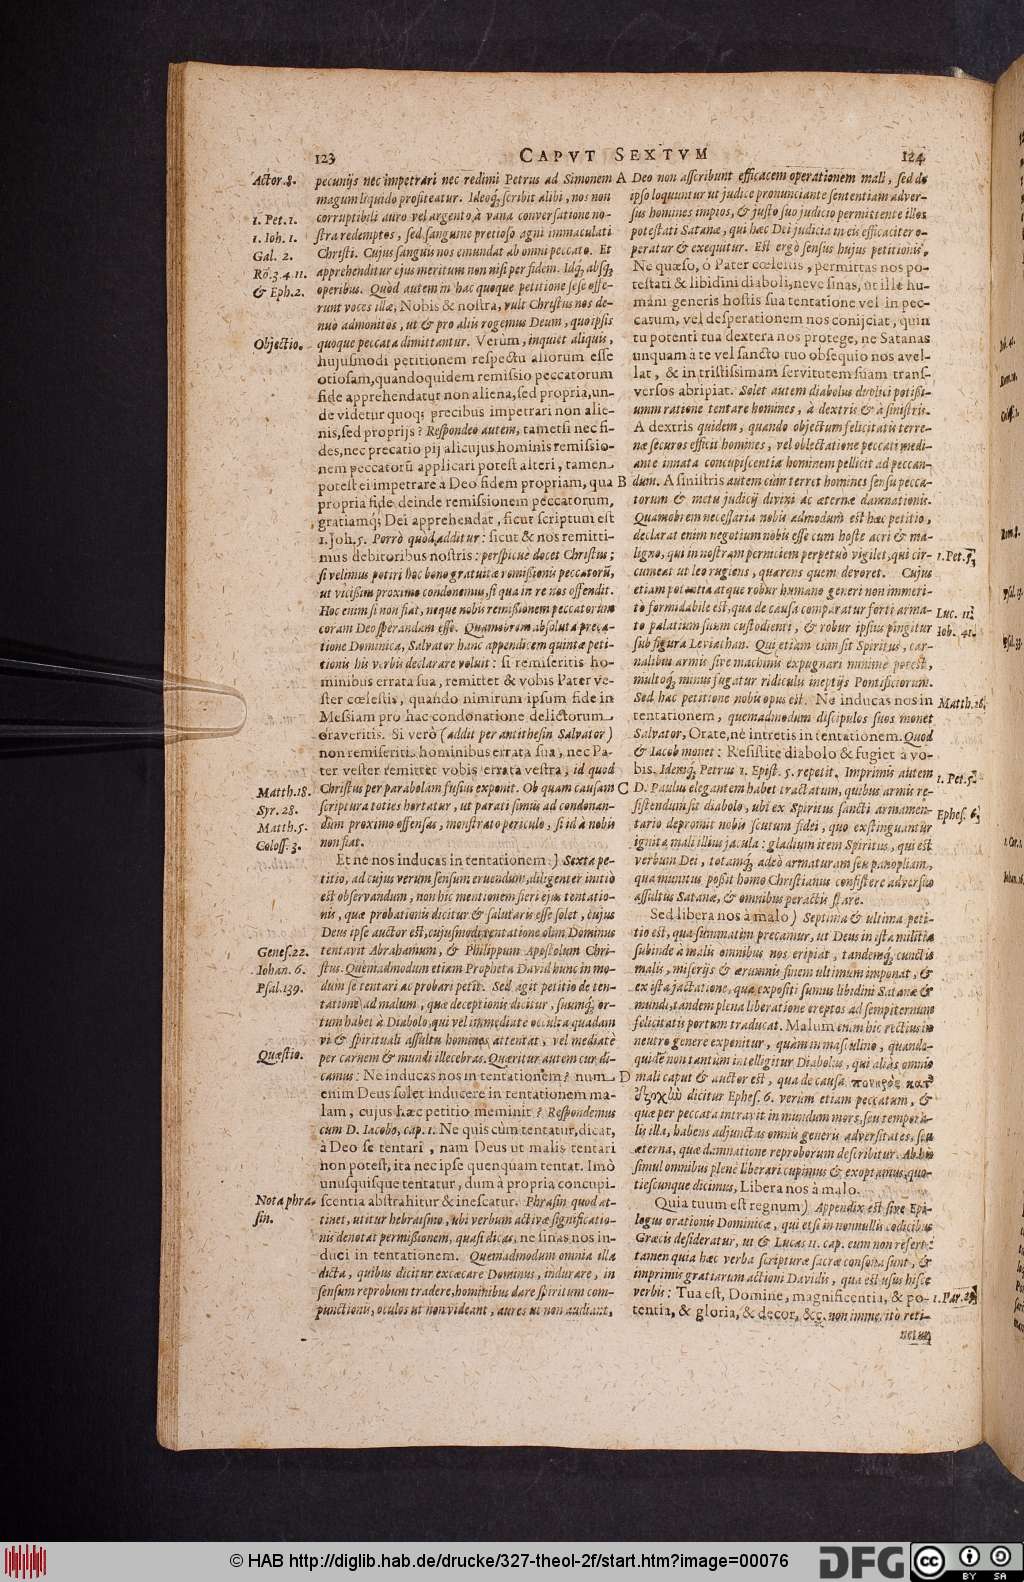 123
CAPVT SEXTVM
124
Actor. 8.
1. Pet. 1.
1. Ioh. 1.
Gal. 2.
Rō. 3. 4. 11.
& Eph. 2.
Objectio.
Matth. 18.
Syr. 28.
Matth. 5.
Coloss. 3.
Genes. 22.
Iohan. 6.
Psal. 139.
Quæstio.
Nota phra-
sin.
pecunijs nec impetrari nec redimi Petrus ad Simonem
magum liquido profiteatur. Ideoq́; scribit alibi, nos non
corruptibili auro vel argento, à vana conversatione no-
stra redemptos, sed sanguine pretioso agni immaculati
Christi. Cujus sanguis nos emundat ab omni peccato. Et
apprehenditur ejus meritum non nisi per fidem. Idq́; absq́;
operibus. Quòd autem in hac quoque petitione sese offe-
runt voces illæ, Nobis & nostra, vult Christus nos de-
nuo admonitos, ut & pro aliis rogemus Deum, quo ipsis
quoque peccata dimittantur. Verum, inquiet aliquis,
hujusmodi petitionem respectu aliorum esse
otiosam, quandoquidem remissio peccatorum
fide apprehendatur non aliena, sed propria, un-
de videtur quoq; precibus impetrari non alie-
nis, sed proprijs? Respondeo autem, tametsi nec fi-
des, nec precatio pij alicujus hominis remissio-
nem peccatorū applicari potest alteri, tamen
potest ei impetrare à Deo fidem propriam, qua
propria fide deinde remissionem peccatorum,
gratiamq́; Dei apprehendat, sicut scriptum est
1. Joh. 5. Porrò quod additur: sicut & nos remitti-
mus debitoribus nostris: perspicuè docet Christus;
si velimus potiri hoc bono gratuitæ remissionis peccatorū,
ut vicissim proximo condonemus, si qua in re nos offendit.
Hoc enim si non fiat, neque nobis remissionem peccatorum
coram Deo sperandam esse. Quamobrem absoluta preca-
tione Dominica, Salvator hanc appendicem quintæ peti-
tionis his verbis declarare voluit: si remiseritis ho-
minibus errata sua, remittet & vobis Pater ve-
ster cœlestis, quando nimirum ipsum fide in
Messiam pro hac condonatione delictorum
oraveritis. Si verò (addit per antithesin Salvator)
non remiseritis hominibus errata sua, nec Pa-
ter vester remittet vobis errata vestra, id quod
Christus per parabolam fusius exponit. Ob quam causam
scriptura toties hortatur, ut parati simus ad condonan-
dum proximo offensas, monstrato periculo, si id à nobis
non fiat.
Et ne nos inducas in tentationem.) Sexta pe-
titio, ad cujus verum sensum eruendum, diligenter initio
est observandum, non hic mentionem fieri ejus tentatio-
nis, quæ probationis dicitur & salutaris esse solet, cujus
Deus ipse auctor est, cujusmodi tentatione olim Dominus
tentavit Abrahamum, & Philippum Apostolum Chri-
stus. Quemadmodum etiam Propheta David hunc in mo-
dum se tentari ac probari petit. Sed agit petitio de ten-
tatione ad malum, quæ deceptionis dicitur, suumq́; or-
tum habet à Diabolo, qui vel immediatè occulta quadam
vi & spirituali assultu homines attentat, vel mediatè
per carnem & mundi illecebras. Quæritur autem cur di-
camus: Ne inducas nos in tentationem? num
enim Deus solet inducere in tentationem ma-
lam, cujus hæc petitio meminit? Respondemus
cum D. Iacobo, cap. 1. Ne quis cùm tentatur, dicat,
à Deo se tentari, nam Deus ut malis tentari
non potest, ita nec ipse quenquam tentat. Imò
unusquisque tentatur, dum à propria concupi-
scentia abstrahitur & inescatur. Phrasin quod at-
tinet, utitur hebraismo, ubi verbum activæ significatio-
nis denotat permissionem, quasi dicas, ne sinas nos in-
duci in tentationem. Quemadmodum omnia illa
dicta, quibus dicitur excæcare Dominus, indurare, in
sensum reprobum tradere, hominibus dare spiritum com-
punctionis, oculos ut non videant, aures ut non audiant,
A
B
C
D
Deo non asscribunt efficacem operationem mali, sed de
ipso loquuntur ut judice pronunciante sententiam adver-
sus homines impios, & justo suo judicio permittente illos
potestati Satanæ, qui hæc Dei judicia in eis efficaciter o-
peratur & exequitur. Est ergò sensus hujus petitionis,
Ne quæso, ô Pater cœlestis, permittas nos po-
testati & libidini diaboli, neve sinas, ut ille hu-
mani generis hostis sua tentatione vel in pec-
catum, vel desperationem nos conijciat, quin
tu potenti tua dextera nos protege, ne Satanas
unquam à te vel sancto tuo obsequio nos avel-
lat, & in tristissimam servitutem suam trans-
versos abripiat. Solet autem diabolus duplici potissi-
mum ratione tentare homines, à dextris & à sinistris.
A dextris quidem, quando objectum felicitatis terre-
næ securos efficit homines, vel oblectatione peccati medi-
ante innata concupiscentia hominem pellicit ad peccan-
dum. A sinistris autem cùm terret homines sensu pecca-
torum & metu judicij divini ac æternæ damnationis.
Quamobrem necessaria nobis admodum est hæc petitio,
declarat enim negotium nobis esse cum hoste acri & ma-
ligno, qui in nostram perniciem perpetuò vigilet, qui cir-
cumeat ut leo rugiens, quærens quem devoret. Cujus
etiam potentia atque robur humano generi non immeri-
tò formidabile est, qua de causa comparatur forti arma-
to palatium suum custodienti, & robur ipsius pingitur
sub figura Leviathan. Qui etiam cùm sit Spiritus, car-
nalibus armis sive machinis expugnari minimè potest,
multoq́; minus fugatur ridiculis ineptijs Pontificiorum.
Sed hac petitione nobis opus est. Ne inducas nos in
tentationem, quemadmodum discipulos suos monet
Salvator, Orate, ne intretis in tentationem. Quod
& Iacob monet: Resistite diabolo & fugiet à vo-
bis. Idemq́; Petrus 1. Epist. 5. repetit. Imprimis autem
D. Paulus elegantem habet tractatum, quibus armis re-
sistendum sit diabolo, ubi ex Spiritus sancti armamen-
tario depromit nobis scutum fidei, quo exstinguantur
ignita mali illius jacula: gladium item Spiritus, qui est
verbum Dei, totamq́; adeò armaturam seu panopliam,
qua munitus possit homo Christianus consistere adversus
assultus Satanæ, & omnibus peractis stare.
Sed libera nos à malo) Septima & ultima peti-
tio est, qua summatim precamur, ut Deus in ista militia
subinde à malis omnibus nos eripiat, tandemq́; cunctis
malis, miserijs & ærumnis finem ultimum imponat, &
ex ista jactatione, qua expositi sumus libidini Satanæ &
mundi, tandem plena liberatione ereptos ad sempiternum
felicitatis portum traducat. Malum enim hic rectius in
neutro genere exponitur, quàm in masculino, quando-
quidem non tantùm intelligitur Diabolus, qui aliàs omnis
mali caput & auctor est, qua de causa πονηρὸς κατ'
ἐξοχὼ dicitur Ephes. 6. verùm etiam peccatum, &
quæ per peccata intravit in mundum mors, seu tempora-
lis illa, habens adjunctas omnis generis adversitates, seu
æterna, quæ damnatione reproborum describitur. Ab his
simul omnibus plenè liberari cupimus & exoptamus, quo-
tiescunque dicimus, Libera nos à malo.
Quia tuum est regnum) Appendix est sive Epi-
logus orationis Dominicæ, qui etsi in nonnullis codicibus
Græcis desideratur, ut & Lucas 11. cap. eum non refert:
tamen quia hæc verba scripturæ sacræ consona sunt, &
imprimis gratiarum actioni Davidis, qua est usus hisce
verbis: Tua est, Domine, magnificentia, & po-
tentia, & gloria, & decor, &c. non immeritò reti-
1. Pet. 5.
Luc. 11.
Iob. 41.
Matth. 26.
1. Pet. 5.
Ephes. 6.
1. Par. 29.
© HAB http://diglib.hab.de/drucke/327-theol-2f/start.htm?image=00076
DFG
cc
BY
SA